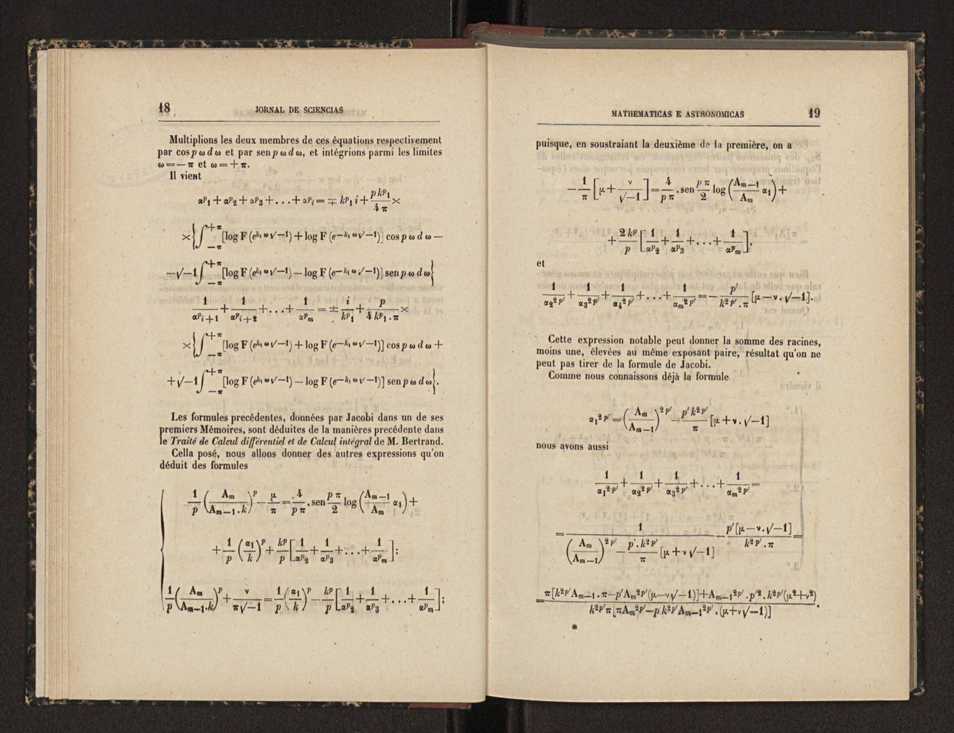 18 JORNAL DE SCIENCIAS
Multiplions les deux membres de ces équations respectivement
par cos p ω d ω et par sen p ω d ω, et intégrions parmi les limites
ω = — π et ω = + π.
Il vient
α^{p_1} + α^{p_2} + α^{p_3} + . . . + α^{p_i} = ∓ k^{p_1} i + \frac{p k^{p_1}}{4 π} ×
× { ∫_{—π}^{+π} [log F (e^{h_1 ω √—1}) + log F (e^{—h_1 ω √—1})] cos p ω d ω —
— √—1 ∫_{—π}^{+π} [log F (e^{h_1 ω √—1}) — log F (e^{—h_1 ω √—1})] sen p ω d ω }
\frac{1}{α^{p_{i+1}}} + \frac{1}{α^{p_{i+2}}} + . . . + \frac{1}{α^{p_m}} = ± \frac{i}{k^{p_1}} + \frac{p}{4 k^{p_1} . π} ×
× { ∫_{—π}^{+π} [log F (e^{h_1 ω √—1}) + log F (e^{—h_1 ω √—1})] cos p ω d ω +
+ √—1 ∫_{—π}^{+π} [log F (e^{h_1 ω √—1}) — log F (e^{—h_1 ω √—1})] sen p ω d ω }.
Les formules precédentes, données par Jacobi dans un de ses
premiers Mémoires, sont déduites de la manières precédente dans
le Traité de Calcul différentiel et de Calcul intégral de M. Bertrand.
Cella posé, nous alloos donner des autres expressions qu'on
déduit des formules
\frac{1}{p} (\frac{A_m}{A_{m—1} . k})^p — \frac{μ}{π} = \frac{4}{p π} . sen \frac{p π}{2} log (\frac{A_{m—1}}{A_m} α_1) +
+ \frac{1}{p} (\frac{α_1}{k})^p + \frac{k^p}{p} [\frac{1}{α^{p_2}} + \frac{1}{α^{p_3}} + . . . + \frac{1}{α^{p_m}}];
\frac{1}{p} (\frac{A_m}{A_{m—1} . k})^p + \frac{ν}{π √—1} = \frac{1}{p} (\frac{α_1}{k})^p — \frac{k^p}{p} [\frac{1}{α^{p_2}} + \frac{1}{α^{p_3}} + . . . + \frac{1}{α^{p_m}}];
MATHEMATICAS E ASTRONOMICAS 19
puisque, en soustraiant la deuxième de la première, on a
— \frac{1}{π} [μ + \frac{ν}{√—1}] = \frac{4}{p π} . sen \frac{p π}{2} log (\frac{A_{m—1}}{A_m} α_1) +
+ \frac{2 k^p}{p} [\frac{1}{α^{p_2}} + \frac{1}{α^{p_3}} + . . . + \frac{1}{α^{p_m}}],
et
\frac{1}{α_2^{2p'}} + \frac{1}{α_3^{2p'}} + \frac{1}{α_4^{2p'}} + . . . + \frac{1}{α_m^{2p'}} = — \frac{p'}{k^{2p'} . π} [μ — ν . √—1].
Cette expression notable peut donner la somme des racines,
moins une, élevées au même exposant paire, résultat qu'on ne
peut pas tirer de la formule de Jacobi.
Comme nous connaissons déjà la formule
α_1^{2p'} = (\frac{A_m}{A_{m—1}})^{2p'} — \frac{p' k^{2p'}}{π} [μ + ν . √—1]
nous avons aussi
\frac{1}{α_1^{2p'}} + \frac{1}{α_2^{2p'}} + \frac{1}{α_3^{2p'}} + . . . + \frac{1}{α_m^{2p'}} =
= \frac{1}{(\frac{A_m}{A_{m—1}})^{2p'} — \frac{p' . k^{2p'}}{π} [μ + ν √—1]} — \frac{p' [μ — ν . √—1]}{k^{2p'} . π} =
= \frac{π [k^{2p'} A_{m—1} . π — p' A_m^{2p'} (μ — ν √—1)] + A_{m—1}^{2p'} . p'^2 . k^{2p'} (μ^2 + ν^2)}{k^{2p'} π [π A_m^{2p'} — p . k^{2p'} A_{m—1}^{2p'} . (μ + ν √—1)]} .